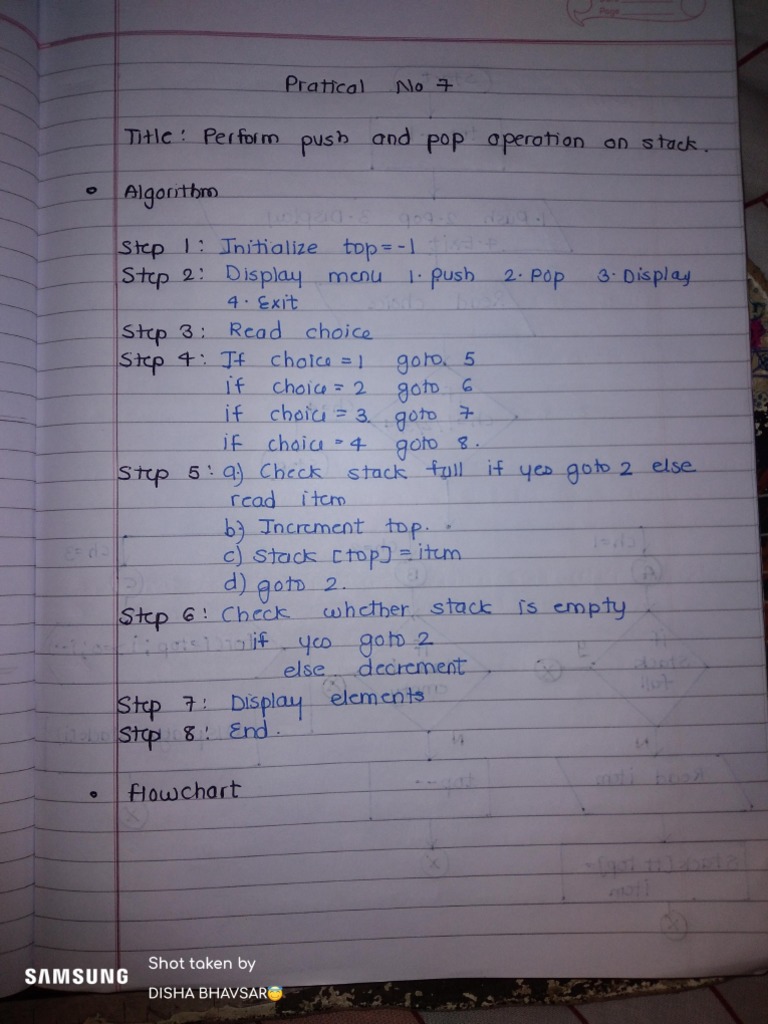 Pratical No 7
Title: Perform push and pop operation on stack.
• Algorithm
Step 1: Initialize top=-1
Step 2: Display menu 1. push 2. Pop 3. Display
4. Exit
Step 3: Read choice
Step 4: If choice = 1 goto. 5
if choice = 2 goto 6
if choice = 3 goto 7
if choice = 4 goto 8.
Step 5: a) Check stack full if yes goto 2 else
read item
b) Increment top.
c) Stack [top] = item
d) goto 2.
Step 6: Check whether stack is empty
if yes goto 2
else decrement
Step 7: Display elements
Step 8: End.
• flowchart
SAMSUNG
Shot taken by
DISHA BHAVSAR😇